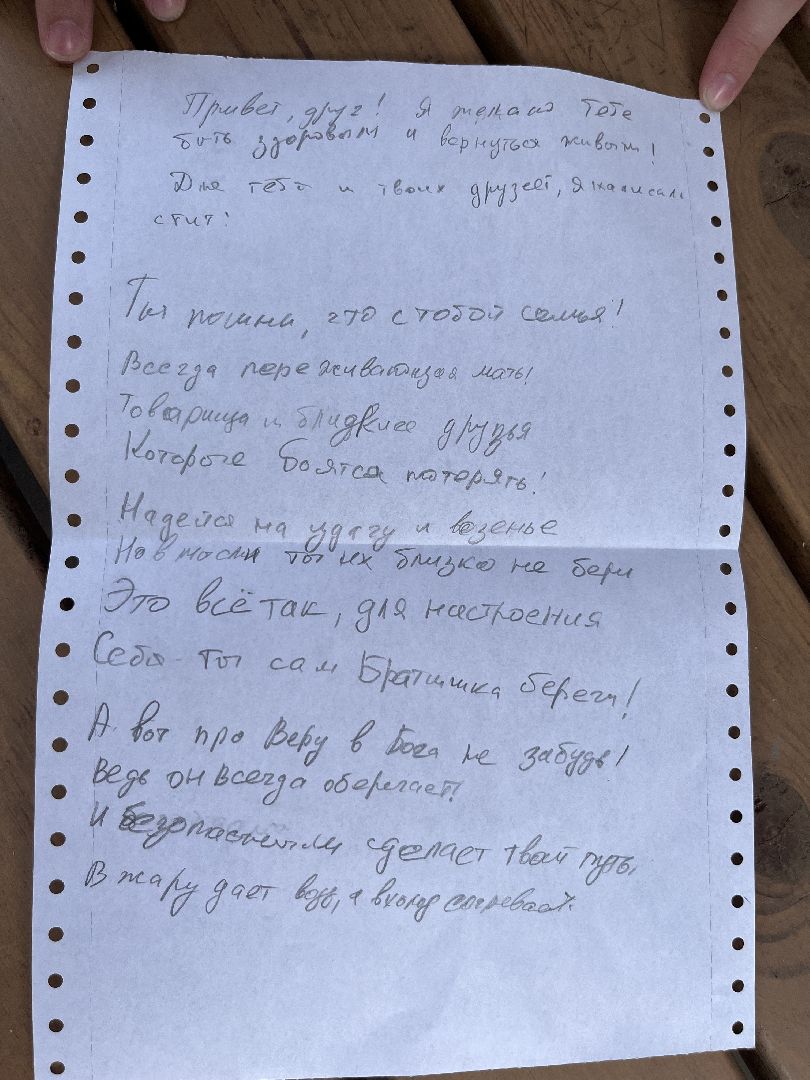 Привет, друг! Я желаю тебе
быть здоровым и вернуться живым!
Для тебя и твоих друзей, я написал
стих!
Ты помни, что с тобой семья!
Всегда переживающая мать!
Товарища и близкие друзья
Которые боятся потерять!
Надейся на удачу и везенье
Но в мысли ты их близко не бери
Это всё так, для настроения
Себя ты сам Братишка береги!
А вот про Веру в Бога не забудь!
Ведь он всегда оберегает!
И безопасным сделает твой путь,
В жару даёт воду, а в холод согревает.